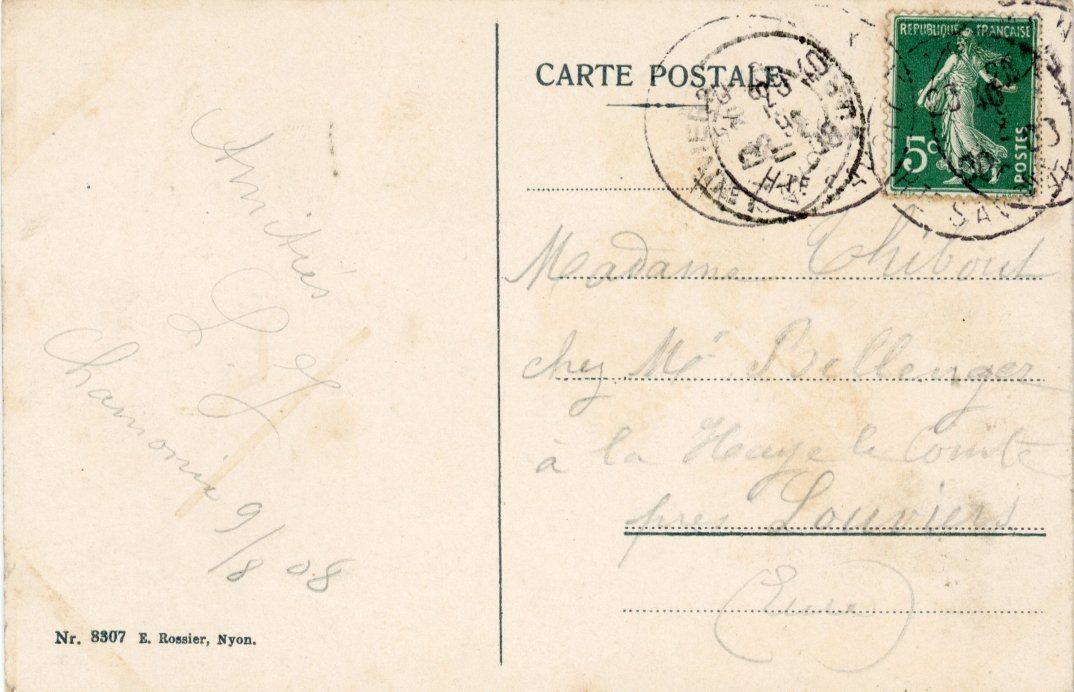 Amitiés
L. L
Chamonix 9/8 08
Nr. 8307 E. Rossier, Nyon.
CARTE POSTALE
REPUBLIQUE FRANÇAISE
5c
POSTES
Madame Thibout
chez Mr Bellenger
à la Haye le Comte
près Louviers
(Eure)